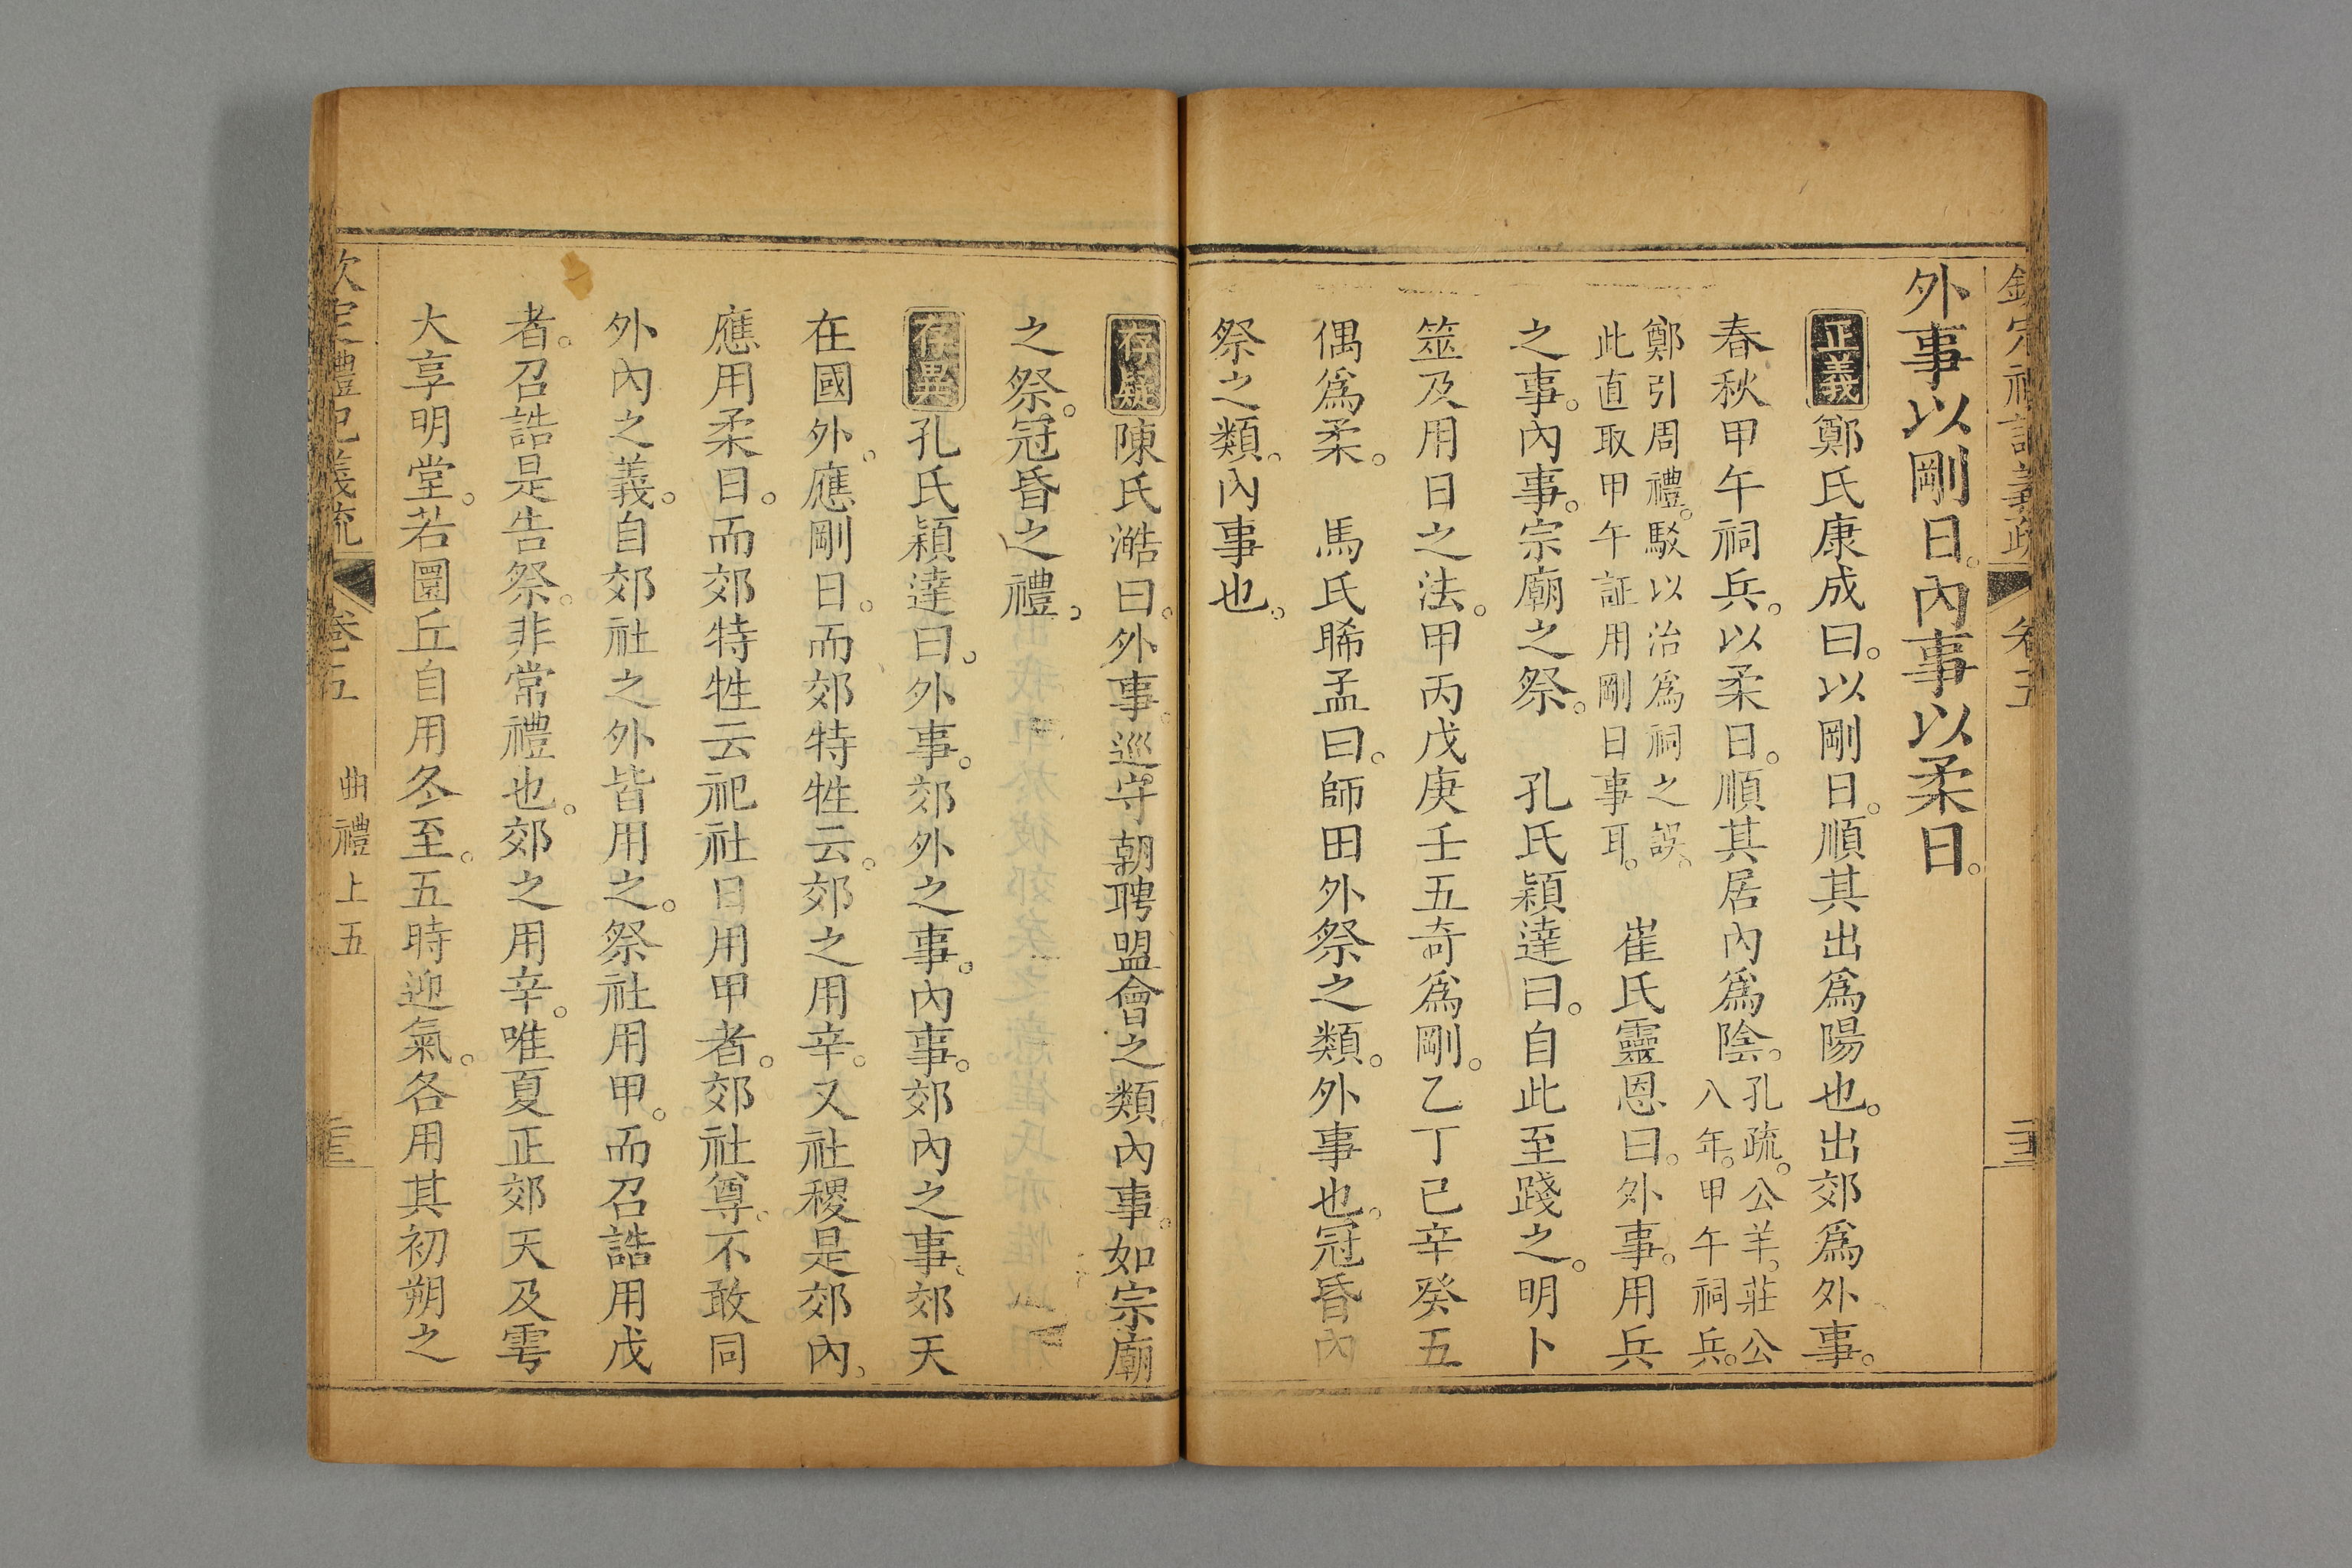 外事以剛日。內事以柔日。
正義鄭氏康成曰。以剛日。順其出爲陽也。出郊爲外事。
春秋甲午祠兵。以柔日。順其居內爲陰。孔疏。公羊。莊公
八年。甲午祠兵。
鄭引周禮。駁以治爲祠之誤。
此直取甲午証用剛日事耳。
崔氏靈恩曰。外事。用兵
之事。內事。宗廟之祭。 孔氏穎達曰。自此至踐之。明卜
筮及用日之法。甲丙戊庚壬五奇爲剛。乙丁已辛癸五
偶爲柔。 馬氏睎孟曰。師田外祭之類。外事也。冠昏內
祭之類。內事也。
存疑陳氏澔曰。外事。巡守朝聘盟會之類內事。如宗廟
之祭。冠昏之禮。
存異孔氏穎達曰。外事。郊外之事。內事。郊內之事。郊天
在國外。應剛日。而郊特牲云。郊之用辛。又社稷是郊內。
應用柔日。而郊特牲云祀社日用甲者。郊社尊。不敢同
外內之義。自郊社之外皆用之。祭社用甲。而召誥用戊
者。召誥是告祭。非常禮也。郊之用辛。唯夏正郊天及雩
大享明堂。若圜丘自用冬至。五時迎氣。各用其初朔之
欽定禮記義疏 卷五 曲禮上五